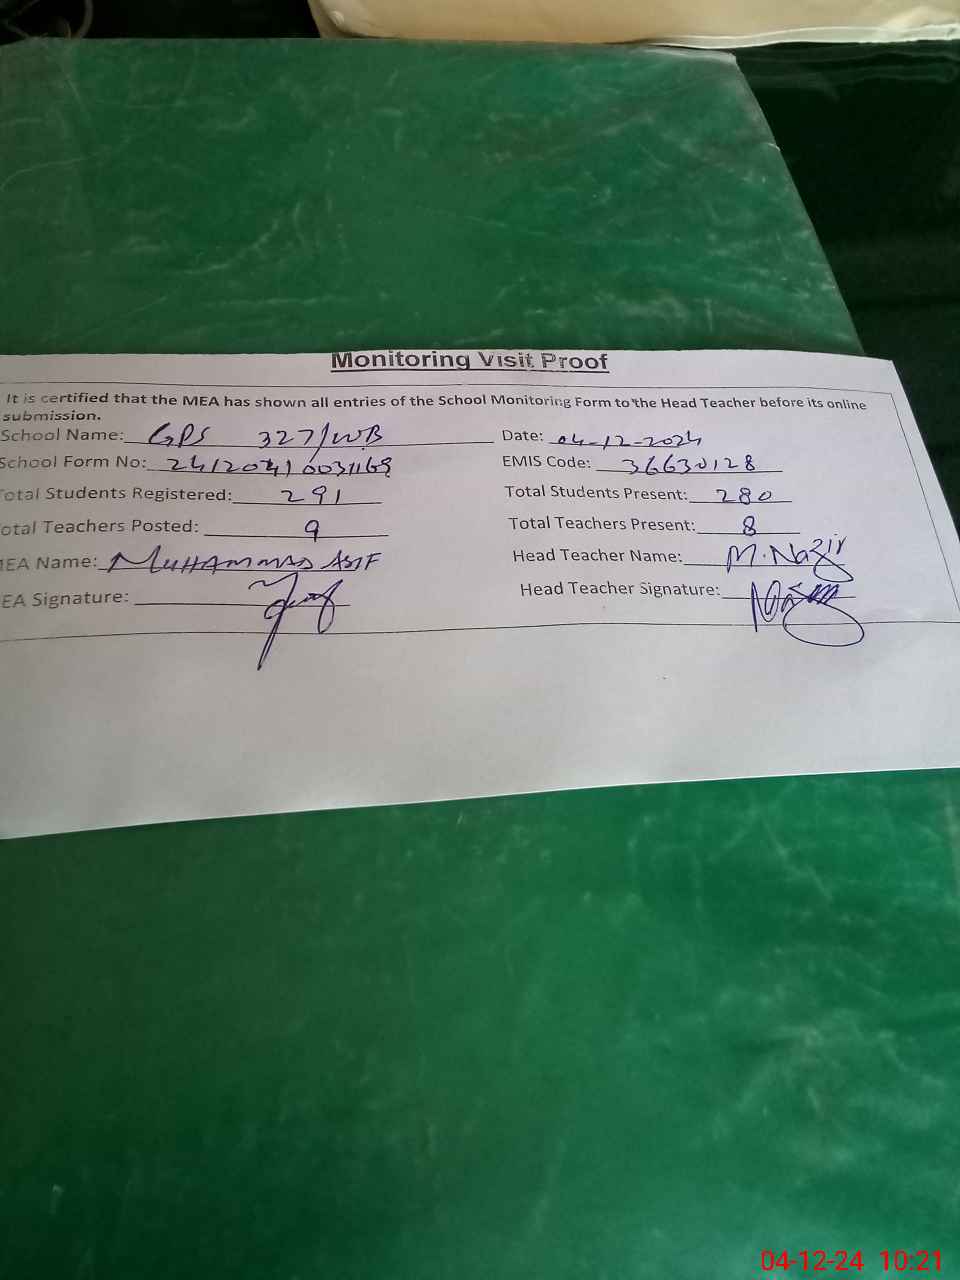 Monitoring Visit Proof
It is certified that the MEA has shown all entries of the School Monitoring Form to the Head Teacher before its online
submission.
School Name: GPS 327/WB Date: 04-12-2024
School Form No: 24120410031169 EMIS Code: 36630128
Total Students Registered: 291 Total Students Present: 280
otal Teachers Posted: 9 Total Teachers Present: 8
MEA Name: MUHAMMAD ASIF Head Teacher Name: M. Nazir
EA Signature: Head Teacher Signature:
04-12-24 10:21